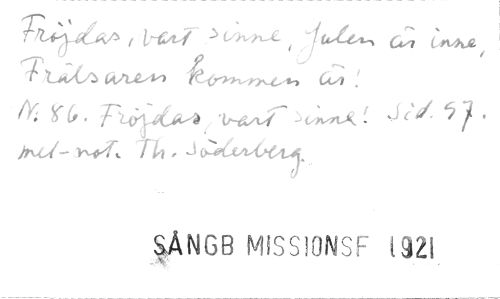 Fröjdas, vart sinne, Julen är inne,
Frälsaren kommen är!
N. 86. Fröjdas, vart sinne! Sid. 97.
mel-not. Th. Söderberg.
SÅNGB MISSIONSF 1921